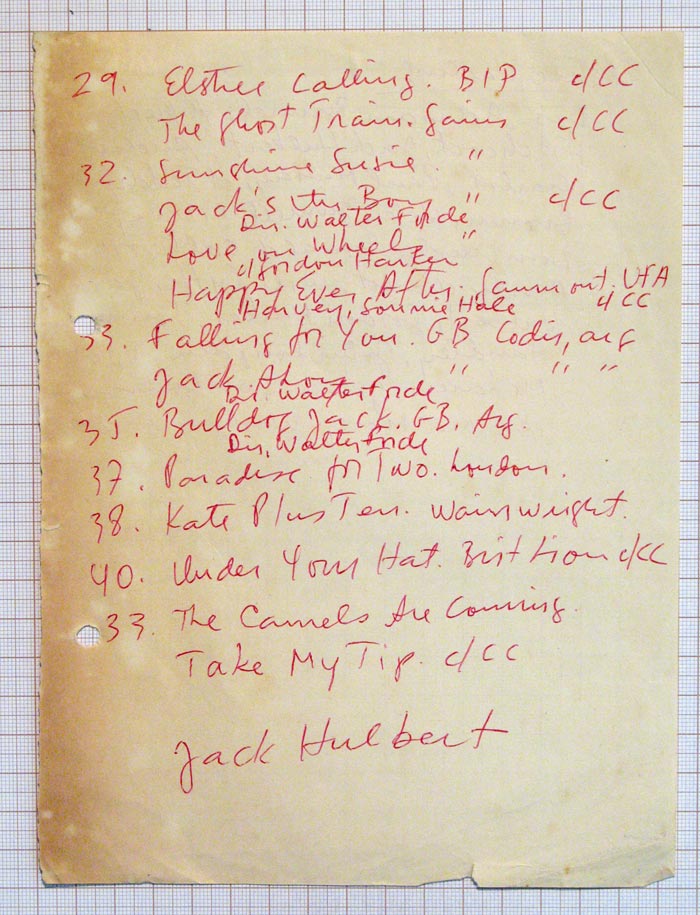 29. Elstree Calling. BIP c/CC
The Ghost Train. Gains c/CC
32. Sunshine Susie. "
Jack's the Boy " c/CC
Dir. Walter Forde
Love on Wheels "
c/Gordon Harker
Happy Ever After. Gaumont. UFA
Harvey, Sonnie Hale c/CC
33. Falling for You. GB Codir, arg
Jack Ahoy " " "
Dir. Walter Forde
35. Bulldog Jack. GB. Arg.
Dir. Walter Forde
37. Paradise for Two. London.
38. Kate Plus Ten. Wainwright.
40. Under Your Hat. Brit Lion c/CC
33. The Camels Are Coming.
Take My Tip. c/CC
Jack Hulbert